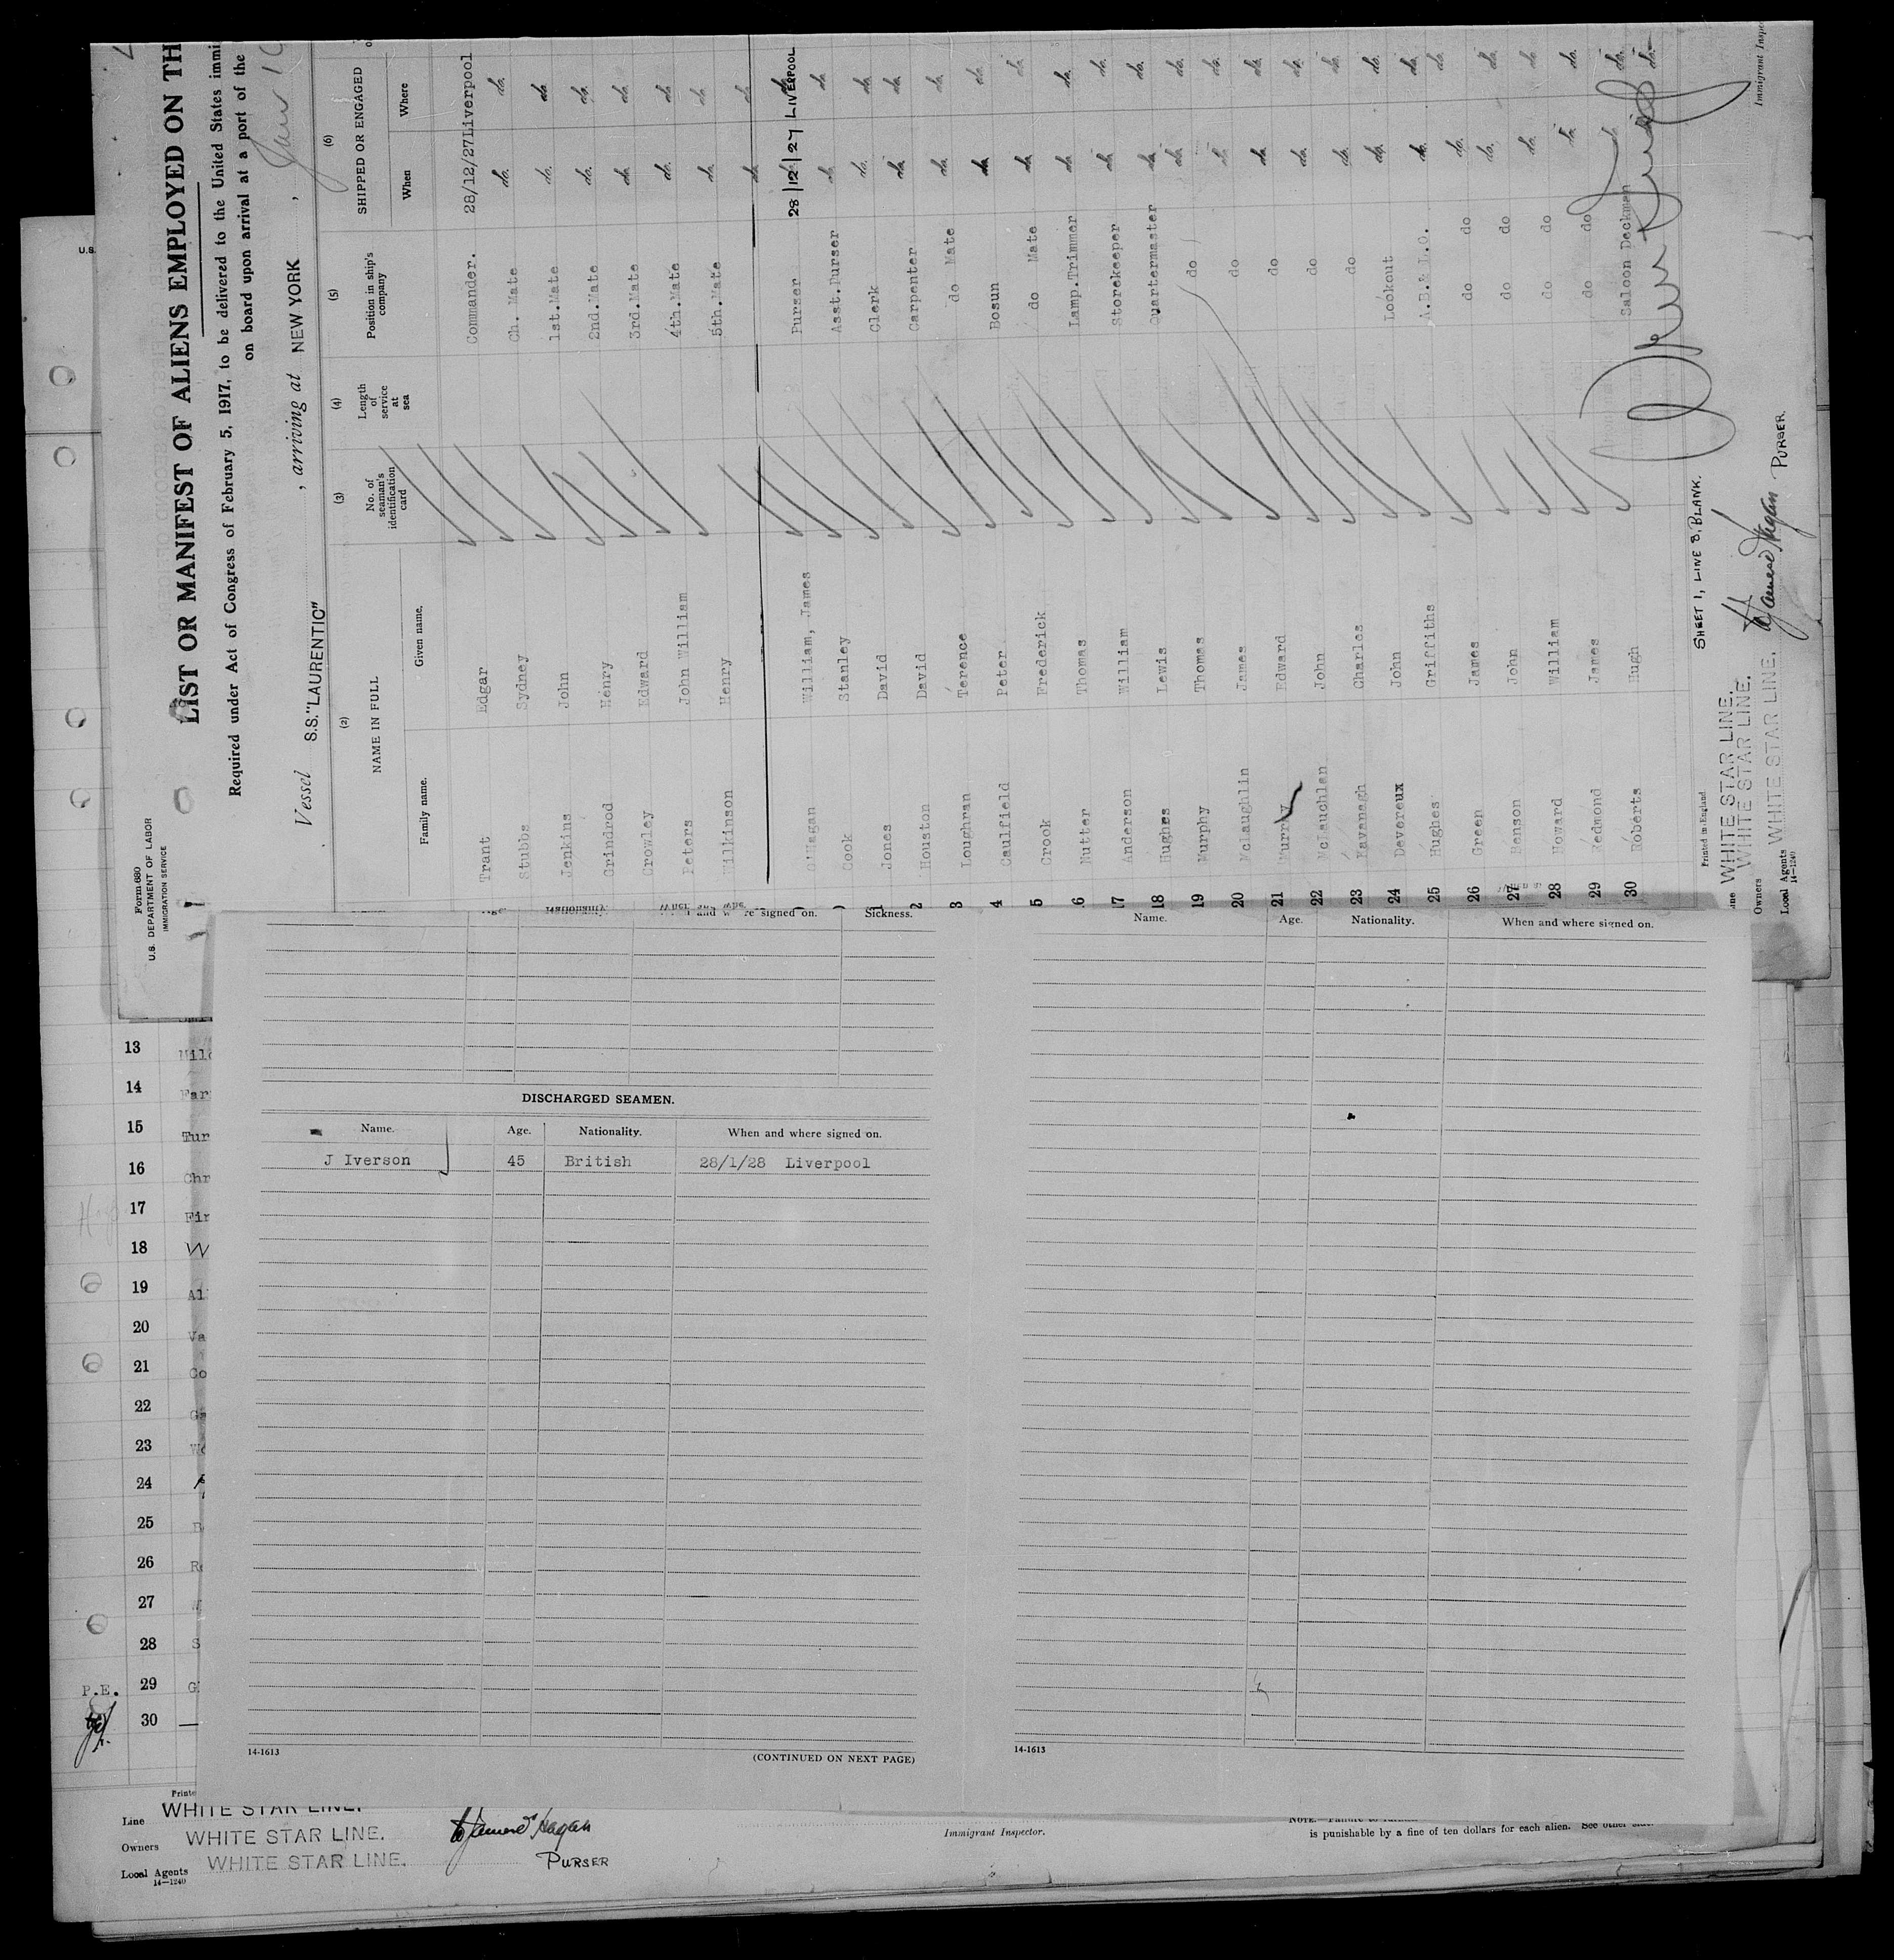 Form 680
U.S. DEPARTMENT OF LABOR
IMMIGRATION SERVICE
LIST OR MANIFEST OF ALIENS EMPLOYED ON TH
Required under Act of Congress of February 5, 1917, to be delivered to the United States immi
on board upon arrival at a port of the
Vessel S.S."LAURENTIC" , arriving at NEW YORK ,
(2) (3) (4) (5) (6)
NAME IN FULL No. of seaman's identification card Length of service at sea Position in ship's company SHIPPED OR ENGAGED
Family name. Given name. When Where
Trant Edgar Commander. 28/12/27 Liverpool
Stubbs Sydney Ch. Mate do. do.
Jenkins John 1st.Mate do. do.
Grindrod Henry 2nd.Mate do. do.
Crowley Edward 3rd.Mate do. do.
Peters John William 4th.Mate do. do.
Wilkinson Henry 5th.Mate do. do.
O'Hagan William, James Purser 28/12/27 LIVERPOOL
Cook Stanley Asst.Purser do. do.
Jones David Clerk do. do.
Houston David Carpenter do. do.
Loughran Terence do Mate do. do.
Caulfield Peter Bosun do. do.
Crook Frederick do Mate do. do.
Nutter Thomas Lamp.Trimmer do. do.
17 Anderson William Storekeeper do. do.
18 Hughes Lewis Quartermaster do. do.
19 Murphy Thomas do do. do.
20 McLaughlin James do do. do.
21 Murry Edward do do. do.
22 McLauchlan John do do. do.
23 Kavanagh Charles do do. do.
24 Devereux John Lookout do. do.
25 Hughes Griffiths A.B.& L.O. do. do.
26 Green James do do do. do.
27 Benson John do do do. do.
28 Howard William do do do. do.
29 Redmond James do do do. do.
30 Roberts Hugh Saloon Deckman do.
SHEET 1, LINE 8, BLANK.
Printed in England.
WHITE STAR LINE.
Owners WHITE STAR LINE.
Local Agents WHITE STAR LINE. PURSER.
14-1240
Immigrant Inspe
Name. Age. Nationality. When and where signed on.
Sickness.
DISCHARGED SEAMEN.
Name. Age. Nationality. When and where signed on.
J Iverson 45 British 28/1/28 Liverpool
14-1613 (CONTINUED ON NEXT PAGE)
14-1613
13
14 Far
15 Tur
16 Chr
17 Fir
18 W
19 Al
20 Va
21 Co
22
23
24
25
26
27
28 S
P.E. 29 G
30
Line WHITE STAR LINE.
Owners WHITE STAR LINE.
Local Agents WHITE STAR LINE.
14-1240
PURSER
Immigrant Inspector.
is punishable by a fine of ten dollars for each alien. See other